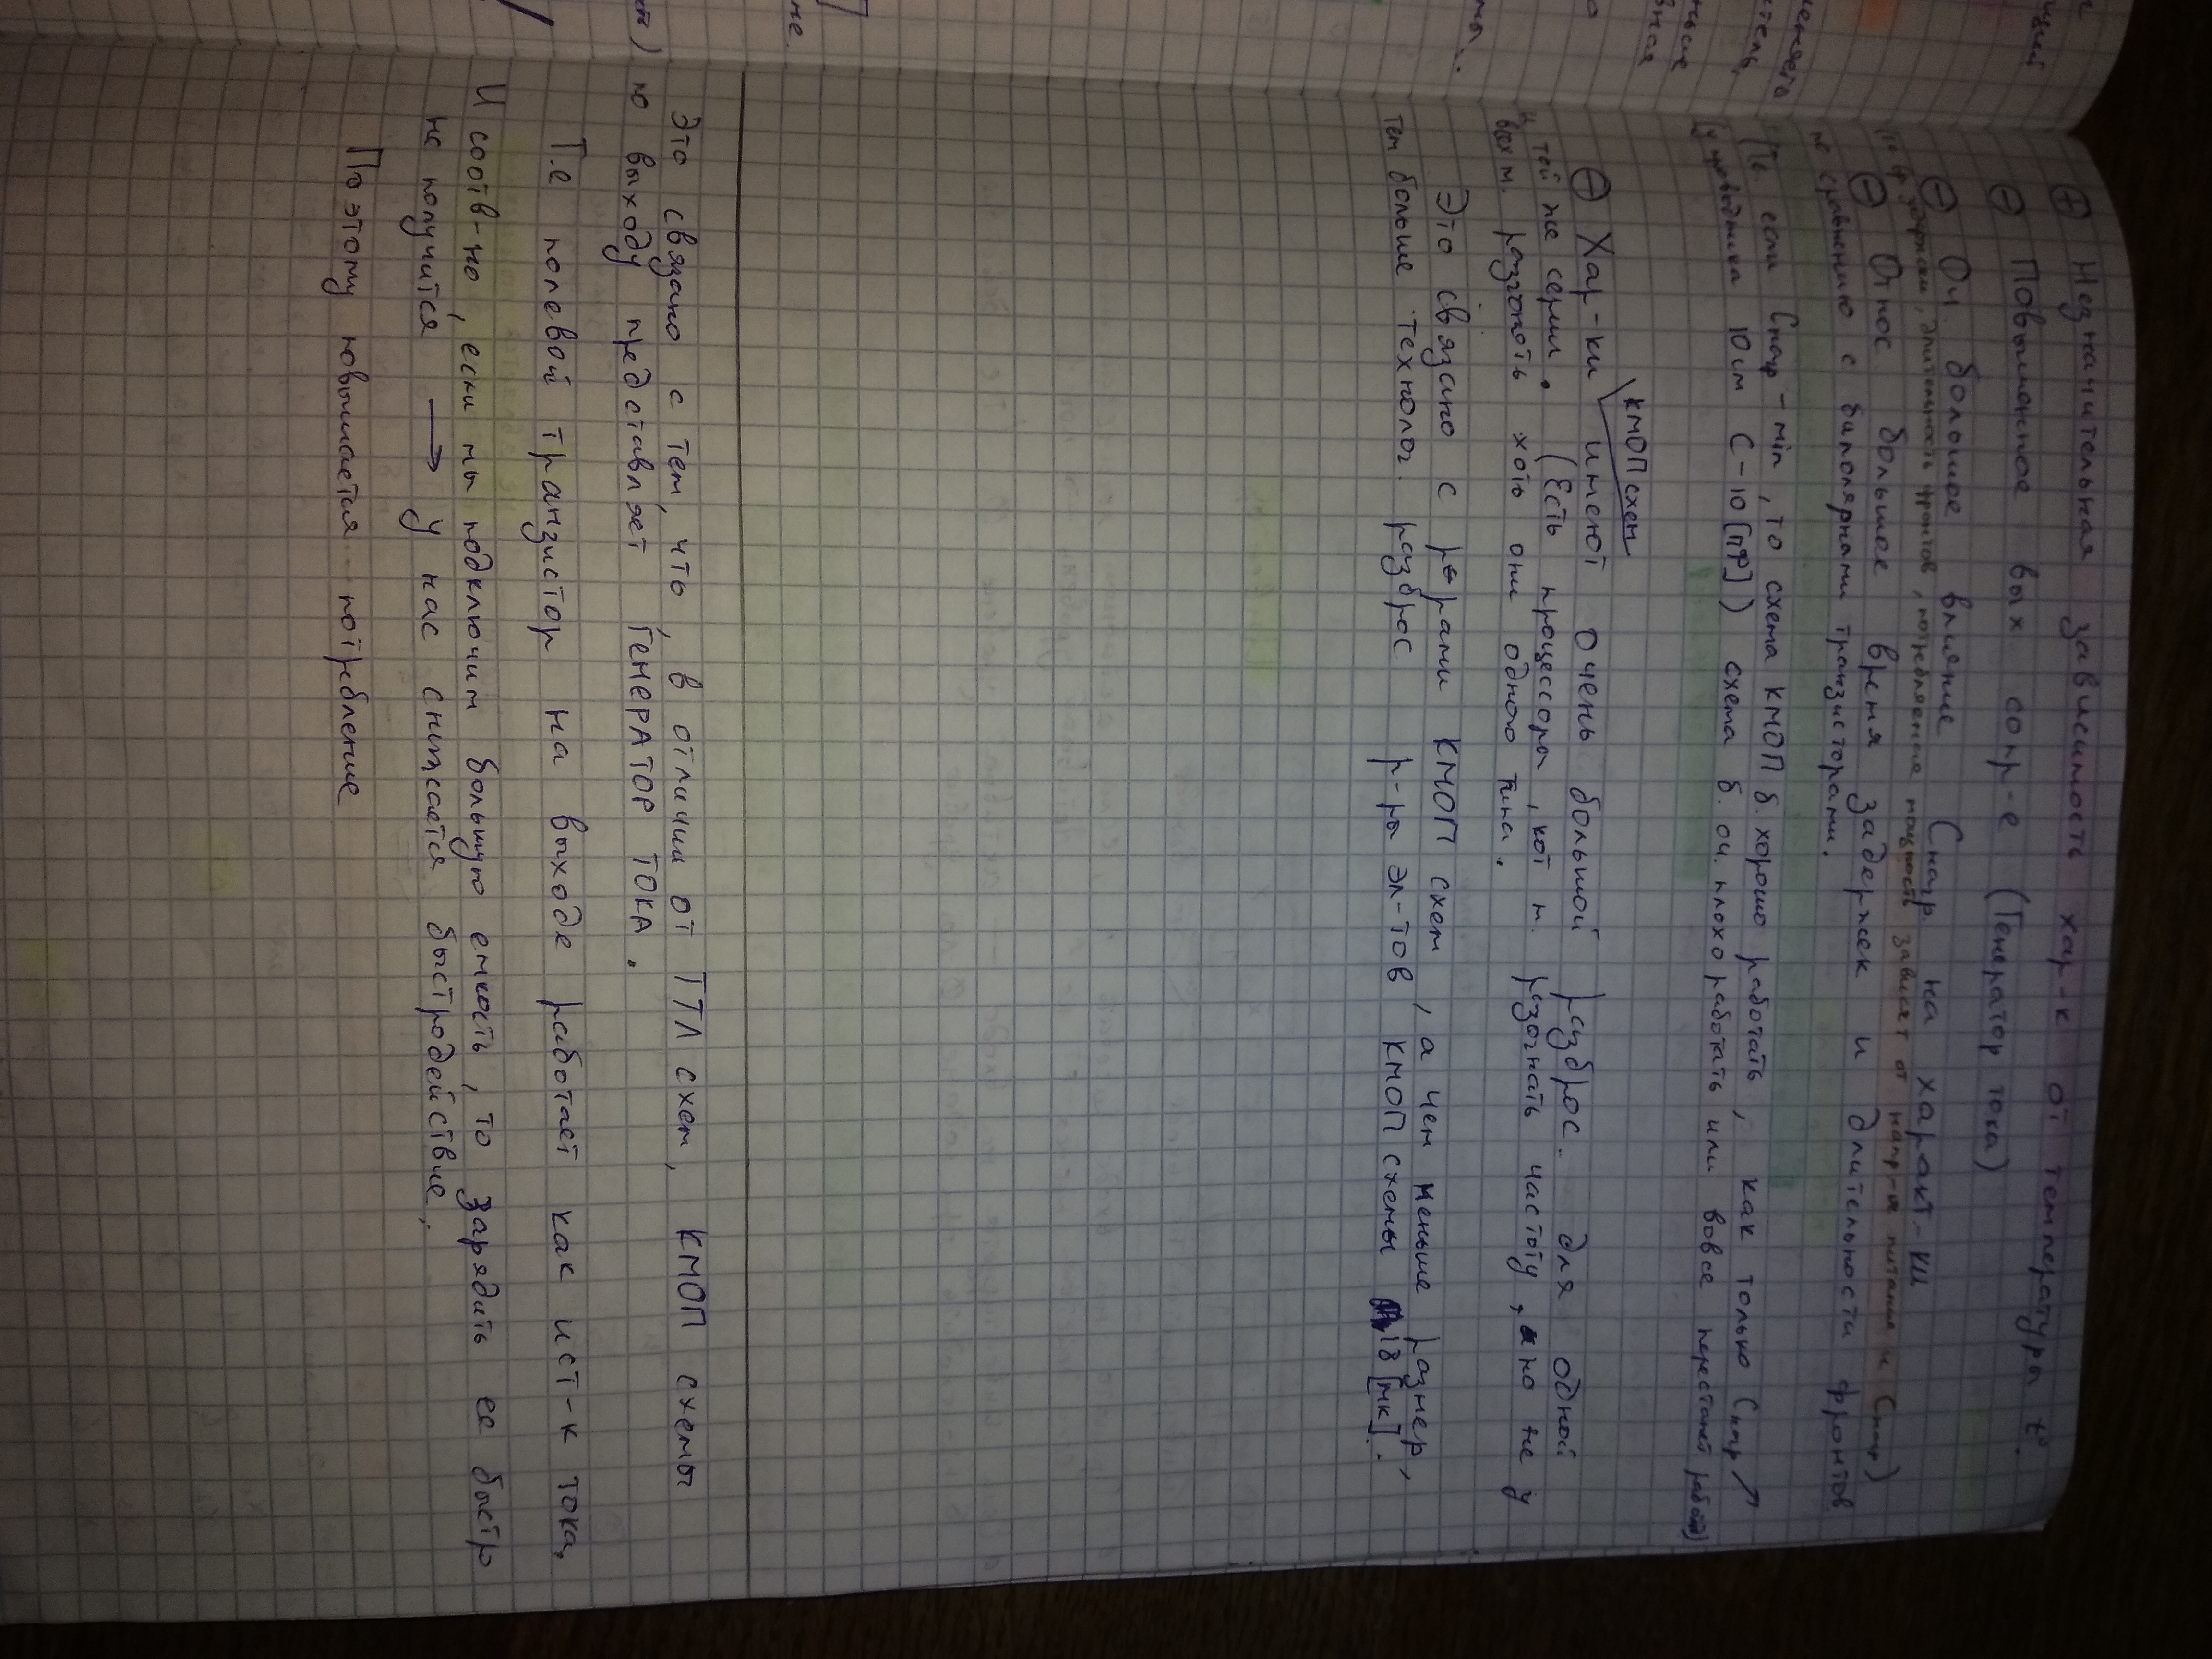 ⊕ Незначительная зависимость хар-к от температуры t°.
⊖ Повышенное вых сопр-е (Генератор тока)
⊖ Оч. большое влияние Cнагр. на характ-ки
задержки, длительность фронтов, потребляемая мощность зависят от напр-я питания и Cнагр)
⊖ Относ большое время задержек и длительности фронтов
по сравнению с биполярными транзисторами.
(Т.е. если Cнагр - min, то схема КМОП б. хорошо работать, как только Cнагр ↗
(у проводника 10 см C - 10 [пФ]) схема б. оч. плохо работать или вовсе перестанет работ)
КМОП схем
⊖ Хар-ки имеют очень большой разброс. для одной
и той же серии. (Есть процессоры, кот м. разогнать частоту, но не у
всех м. разогнать хоть они одного типа.
Это связано с р-рами КМОП схем, а чем меньше размер,
тем больше технолог. разброс р-ры эл-тов КМОП схемы 18 [мк].
Это связано с тем, что, в отличии от ТТЛ схем, КМОП схемы
по выходу представляет ГЕНЕРАТОР ТОКА.
Т.е полевой транзистор на выходе работает как ист-к тока.
И соотв-но, если мы подключим большую емкость, то зарядить ее быстр
не получится → у нас снижается быстродействие.
Поэтому повышается потребление